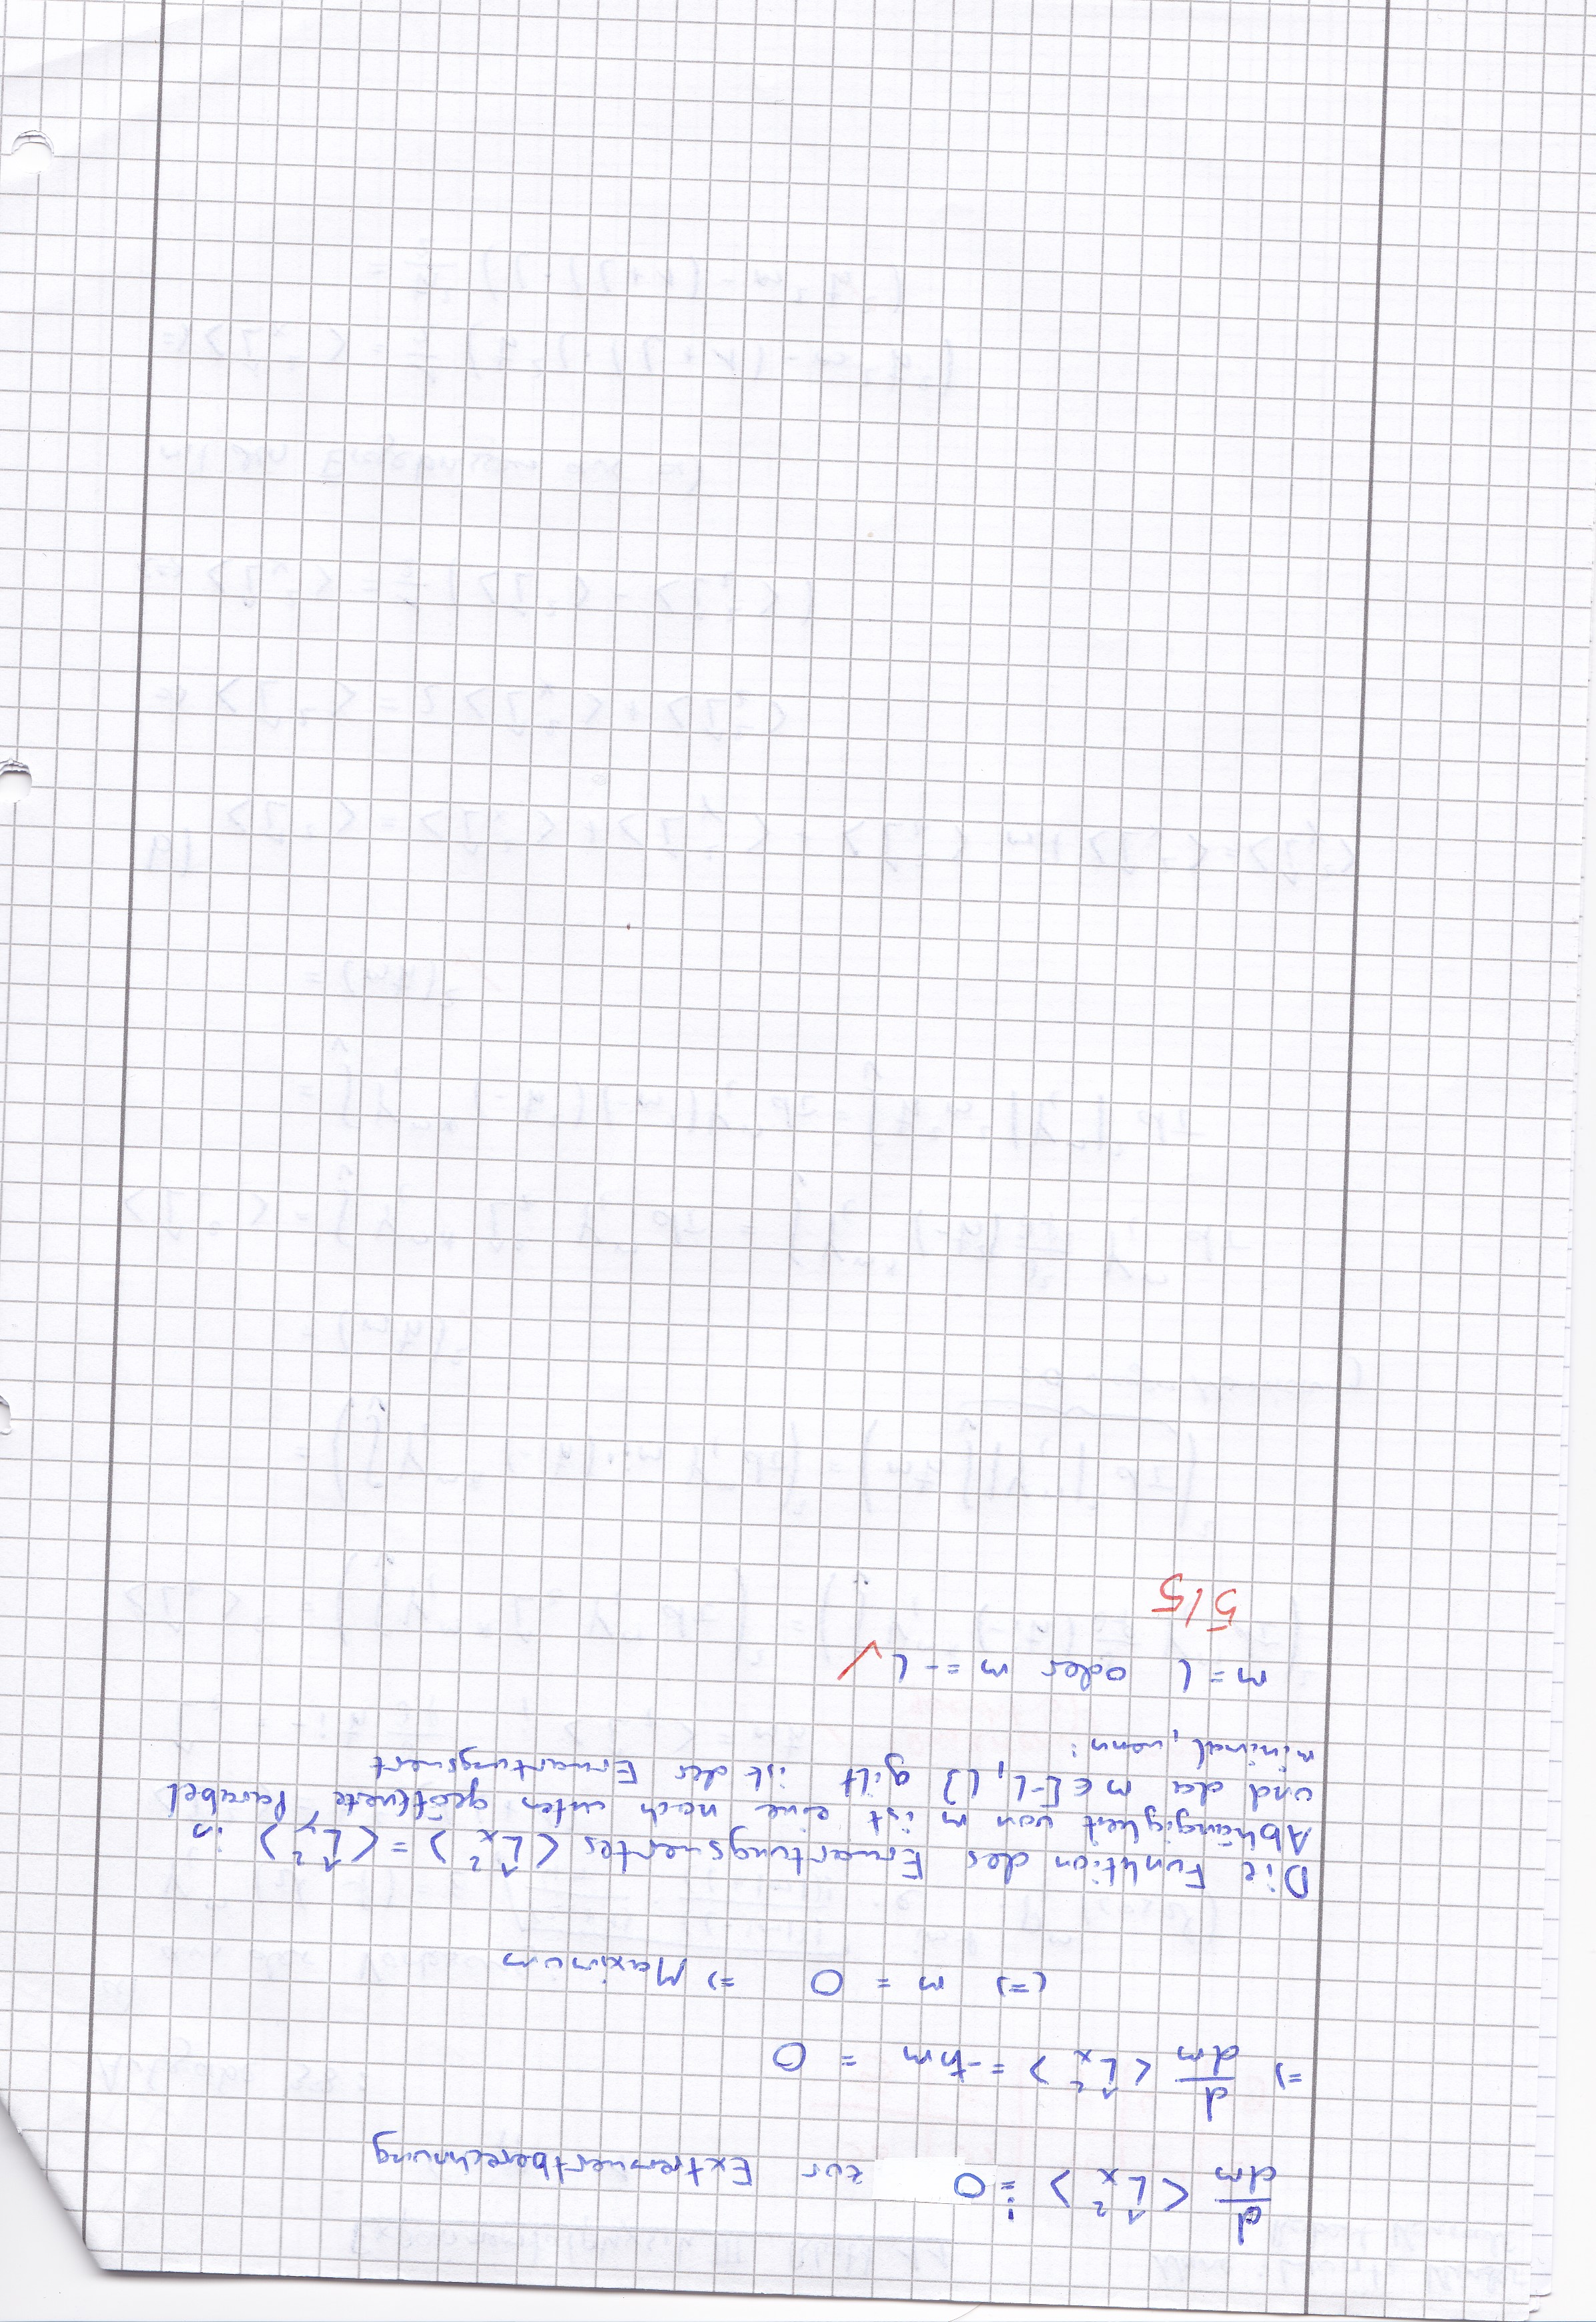 d/dm <L̂x²> != 0 zur Extremwertberechnung
=> d/dm <L̂x²> = -ħm = 0
(=) m = 0 => Maximum
Die Funktion des Erwartungswertes <L̂x²> = <L̂y²> in
Abhängigkeit von m ist eine nach unten geöffnete Parabel
und da m ∈ [-l, l] gilt ist der Erwartungswert
minimal, wenn:
m = l oder m = -l ✓
5/5